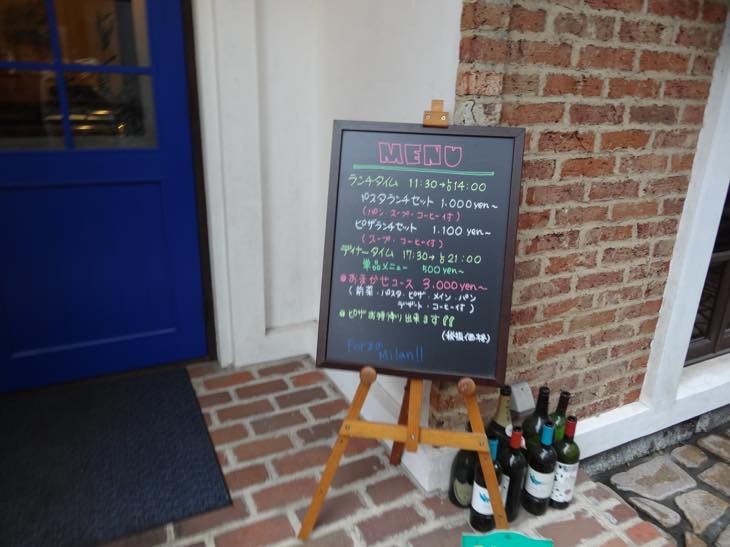 MENU
ランチタイム 11:30→LO14:00
パスタランチセット 1,000yen〜
(パン・スープ・コーヒー付)
ピザランチセット 1,100yen〜
(スープ・コーヒー付)
ディナータイム 17:30→LO21:00
単品メニュー 500yen〜
おまかせコース 3,000yen〜
(前菜・パスタ・ピザ・メイン・パン
デザート・コーヒー付)
ピザお持帰り出来ます!!
(税抜価格)
Forza
Milan!!